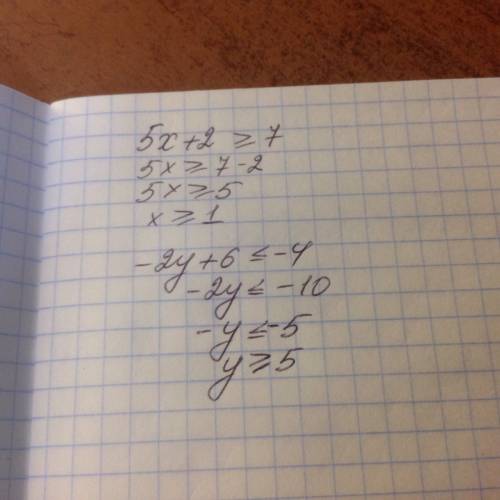 5x+2 ≥ 7
5x ≥ 7-2
5x ≥ 5
x ≥ 1
-2y+6 ≤ -4
-2y ≤ -10
-y ≤ -5
y ≥ 5